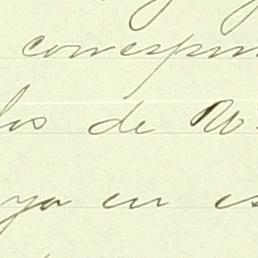 correspon
los de No
ya en es